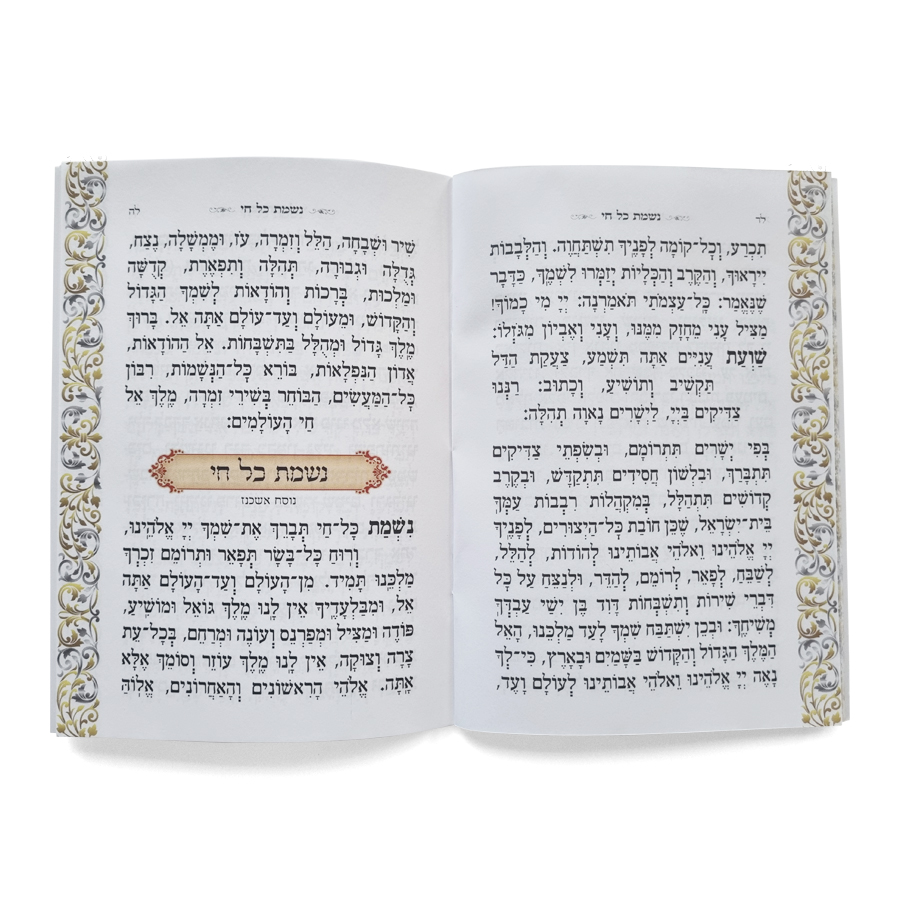 נשמת כל חי
לד
תִכְרַע, וְכָל־קוֹמָה לְפָנֶיךָ תִשְׁתַּחֲוֶה. וְהַלְּבָבוֹת
יִירָאוּךָ, וְהַקֶּרֶב וְהַכְּלָיוֹת יְזַמְּרוּ לִשְׁמֶךָ, כַּדָּבָר
שֶׁנֶּאֱמַר: כָּל־עַצְמֹתַי תֹּאמַרְנָה: יְיָ מִי כָמוֹךָ!
מַצִּיל עָנִי מֵחָזָק מִמֶּנּוּ, וְעָנִי וְאֶבְיוֹן מִגֹּזְלוֹ:
שַׁוְעַת עֲנִיִּים אַתָּה תִּשְׁמַע, צַעֲקַת הַדַּל
תַּקְשִׁיב וְתוֹשִׁיעַ, וְכָתוּב: רַנְּנוּ
צַדִּיקִים בַּייָ, לַיְשָׁרִים נָאוָה תְהִלָּה:
בְּפִי יְשָׁרִים תִּתְרוֹמַם, וּבְשִׂפְתֵי צַדִּיקִים
תִּתְבָּרַךְ, וּבִלְשׁוֹן חֲסִידִים תִּתְקַדָּשׁ, וּבְקֶרֶב
קְדוֹשִׁים תִּתְהַלָּל, בְּמִקְהֲלוֹת רִבְבוֹת עַמְּךָ
בֵּית־יִשְׂרָאֵל, שֶׁכֵּן חוֹבַת כָּל־הַיְצוּרִים, לְפָנֶיךָ
יְיָ אֱלֹהֵינוּ וֵאלֹהֵי אֲבוֹתֵינוּ לְהוֹדוֹת, לְהַלֵּל,
לְשַׁבֵּחַ, לְפָאֵר, לְרוֹמֵם, לְהַדֵּר, וּלְנַצֵּחַ עַל כָּל
דִּבְרֵי שִׁירוֹת וְתִשְׁבָּחוֹת דָּוִד בֶּן יִשַׁי עַבְדְּךָ
מְשִׁיחֶךָ: וּבְכֵן יִשְׁתַּבַּח שִׁמְךָ לָעַד מַלְכֵּנוּ, הָאֵל
הַמֶּלֶךְ הַגָּדוֹל וְהַקָּדוֹשׁ בַּשָּׁמַיִם וּבָאָרֶץ, כִּי־לְךָ
נָאֶה יְיָ אֱלֹהֵינוּ וֵאלֹהֵי אֲבוֹתֵינוּ לְעוֹלָם וָעֶד,
נשמת כל חי
לה
שִׁיר וּשְׁבָחָה, הַלֵּל וְזִמְרָה, עֹז, וּמֶמְשָׁלָה, נֶצַח,
גְּדֻלָּה וּגְבוּרָה, תְּהִלָּה וְתִפְאֶרֶת, קְדֻשָּׁה
וּמַלְכוּת, בְּרָכוֹת וְהוֹדָאוֹת לְשִׁמְךָ הַגָּדוֹל
וְהַקָּדוֹשׁ, וּמֵעוֹלָם וְעַד־עוֹלָם אַתָּה אֵל. בָּרוּךְ
מֶלֶךְ גָּדוֹל וּמְהֻלָּל בַּתִּשְׁבָּחוֹת. אֵל הַהוֹדָאוֹת,
אֲדוֹן הַנִּפְלָאוֹת, בּוֹרֵא כָּל־הַנְּשָׁמוֹת, רִבּוֹן
כָּל־הַמַּעֲשִׂים, הַבּוֹחֵר בְּשִׁירֵי זִמְרָה, מֶלֶךְ אֵל
חֵי הָעוֹלָמִים:
נשמת כל חי
נוסח אשכנז
נִשְׁמַת כָּל־חַי תְּבָרֵךְ אֶת־שִׁמְךָ יְיָ אֱלֹהֵינוּ,
וְרוּחַ כָּל־בָּשָׂר תְּפָאֵר וּתְרוֹמֵם זִכְרְךָ
מַלְכֵּנוּ תָּמִיד. מִן־הָעוֹלָם וְעַד־הָעוֹלָם אַתָּה
אֵל, וּמִבַּלְעָדֶיךָ אֵין לָנוּ מֶלֶךְ גּוֹאֵל וּמוֹשִׁיעַ,
פּוֹדֶה וּמַצִּיל וּמְפַרְנֵס וְעוֹנֶה וּמְרַחֵם, בְּכָל־עֵת
צָרָה וְצוּקָה, אֵין לָנוּ מֶלֶךְ עוֹזֵר וְסוֹמֵךְ אֶלָּא
אָתָּה. אֱלֹהֵי הָרִאשׁוֹנִים וְהָאַחֲרוֹנִים, אֱלוֹהַּ